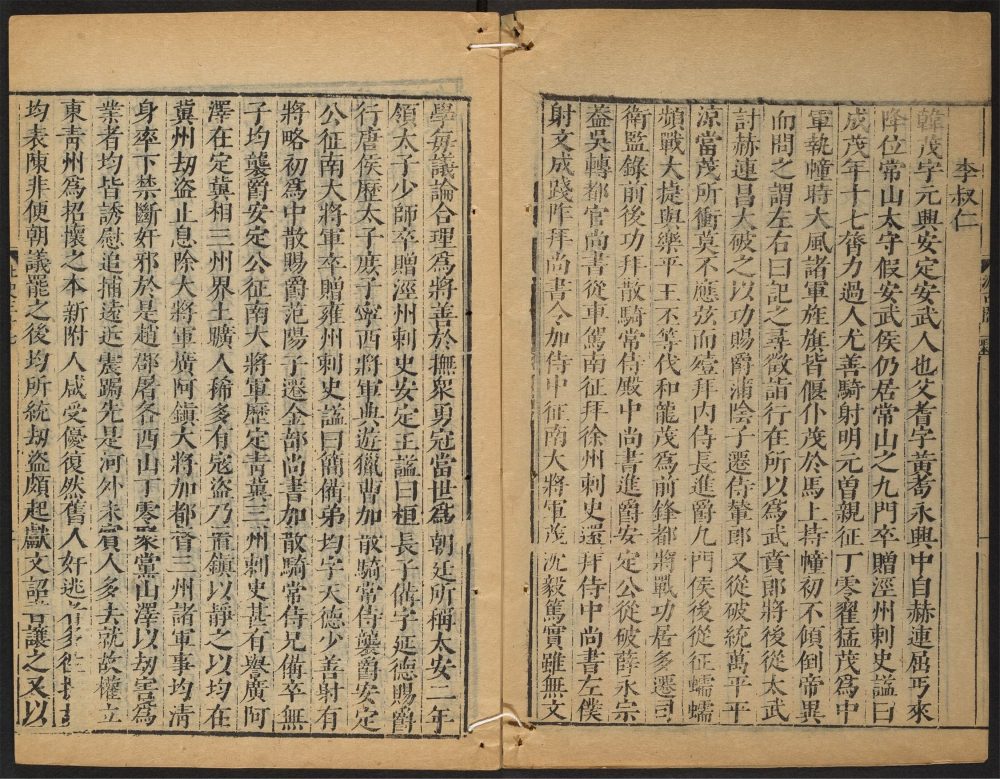 李叔仁
韓茂字元興安定安武人也父耆字黃耇永興中自赫連屈丐來
降位常山太守假安武侯仍居常山之九門卒贈涇州刺史謚曰
成茂年十七膂力過人尤善騎射明元曾親征丁零翟猛茂為中
軍執幢時大風諸軍旌旗皆偃仆茂於馬上持幢初不傾倒帝異
而問之謂左右曰記之尋徵詣行在所以為武賁郎將後從太武
討赫連昌大破之以功賜爵蒲陰子遷侍輦郎又從破統萬平平
涼當茂所衝莫不應弦而殪拜內侍長進爵九門侯後從征蠕蠕
頻戰大捷與樂平王丕等伐和龍茂為前鋒都將戰功居多遷司
衛監錄前後功拜散騎常侍殿中尚書進爵安定公從破薛永宗
蓋吳轉都官尚書從車駕南征拜徐州刺史還拜侍中尚書左僕
射文成踐阼拜尚書令加侍中征南大將軍茂沉毅篤實雖無文
學每議論合理為將善於撫眾勇冠當世為朝廷所稱太安二年
領太子少師卒贈涇州刺史安定王謚曰桓長子備字延德賜爵
行唐侯歷太子庶子寧西將軍典遊獵曹加散騎常侍襲爵安定
公征南大將軍卒贈雍州刺史謚曰簡備弟均字天德少善射有
將略初為中散賜爵范陽子遷金部尚書加散騎常侍兄備卒無
子均襲爵安定公征南大將軍歷定青冀三州刺史甚有譽廣阿
澤在定冀相三州界土曠人稀多有寇盜乃置鎮以靜之以均在
冀州劫盜止息除大將軍廣阿鎮大將加都督三州諸軍事均清
身率下禁斷奸邪於是趙郡屠各西山丁零聚黨山澤以劫害為
業者均皆誘慰追捕遠近震跼先是河外未賓人多去就故權立
東青州為招懷之本新附人咸受優復然舊人奸逃者多往
均表陳非便朝議罷之後均所統劫盜頗起獻文詔書讓之又以